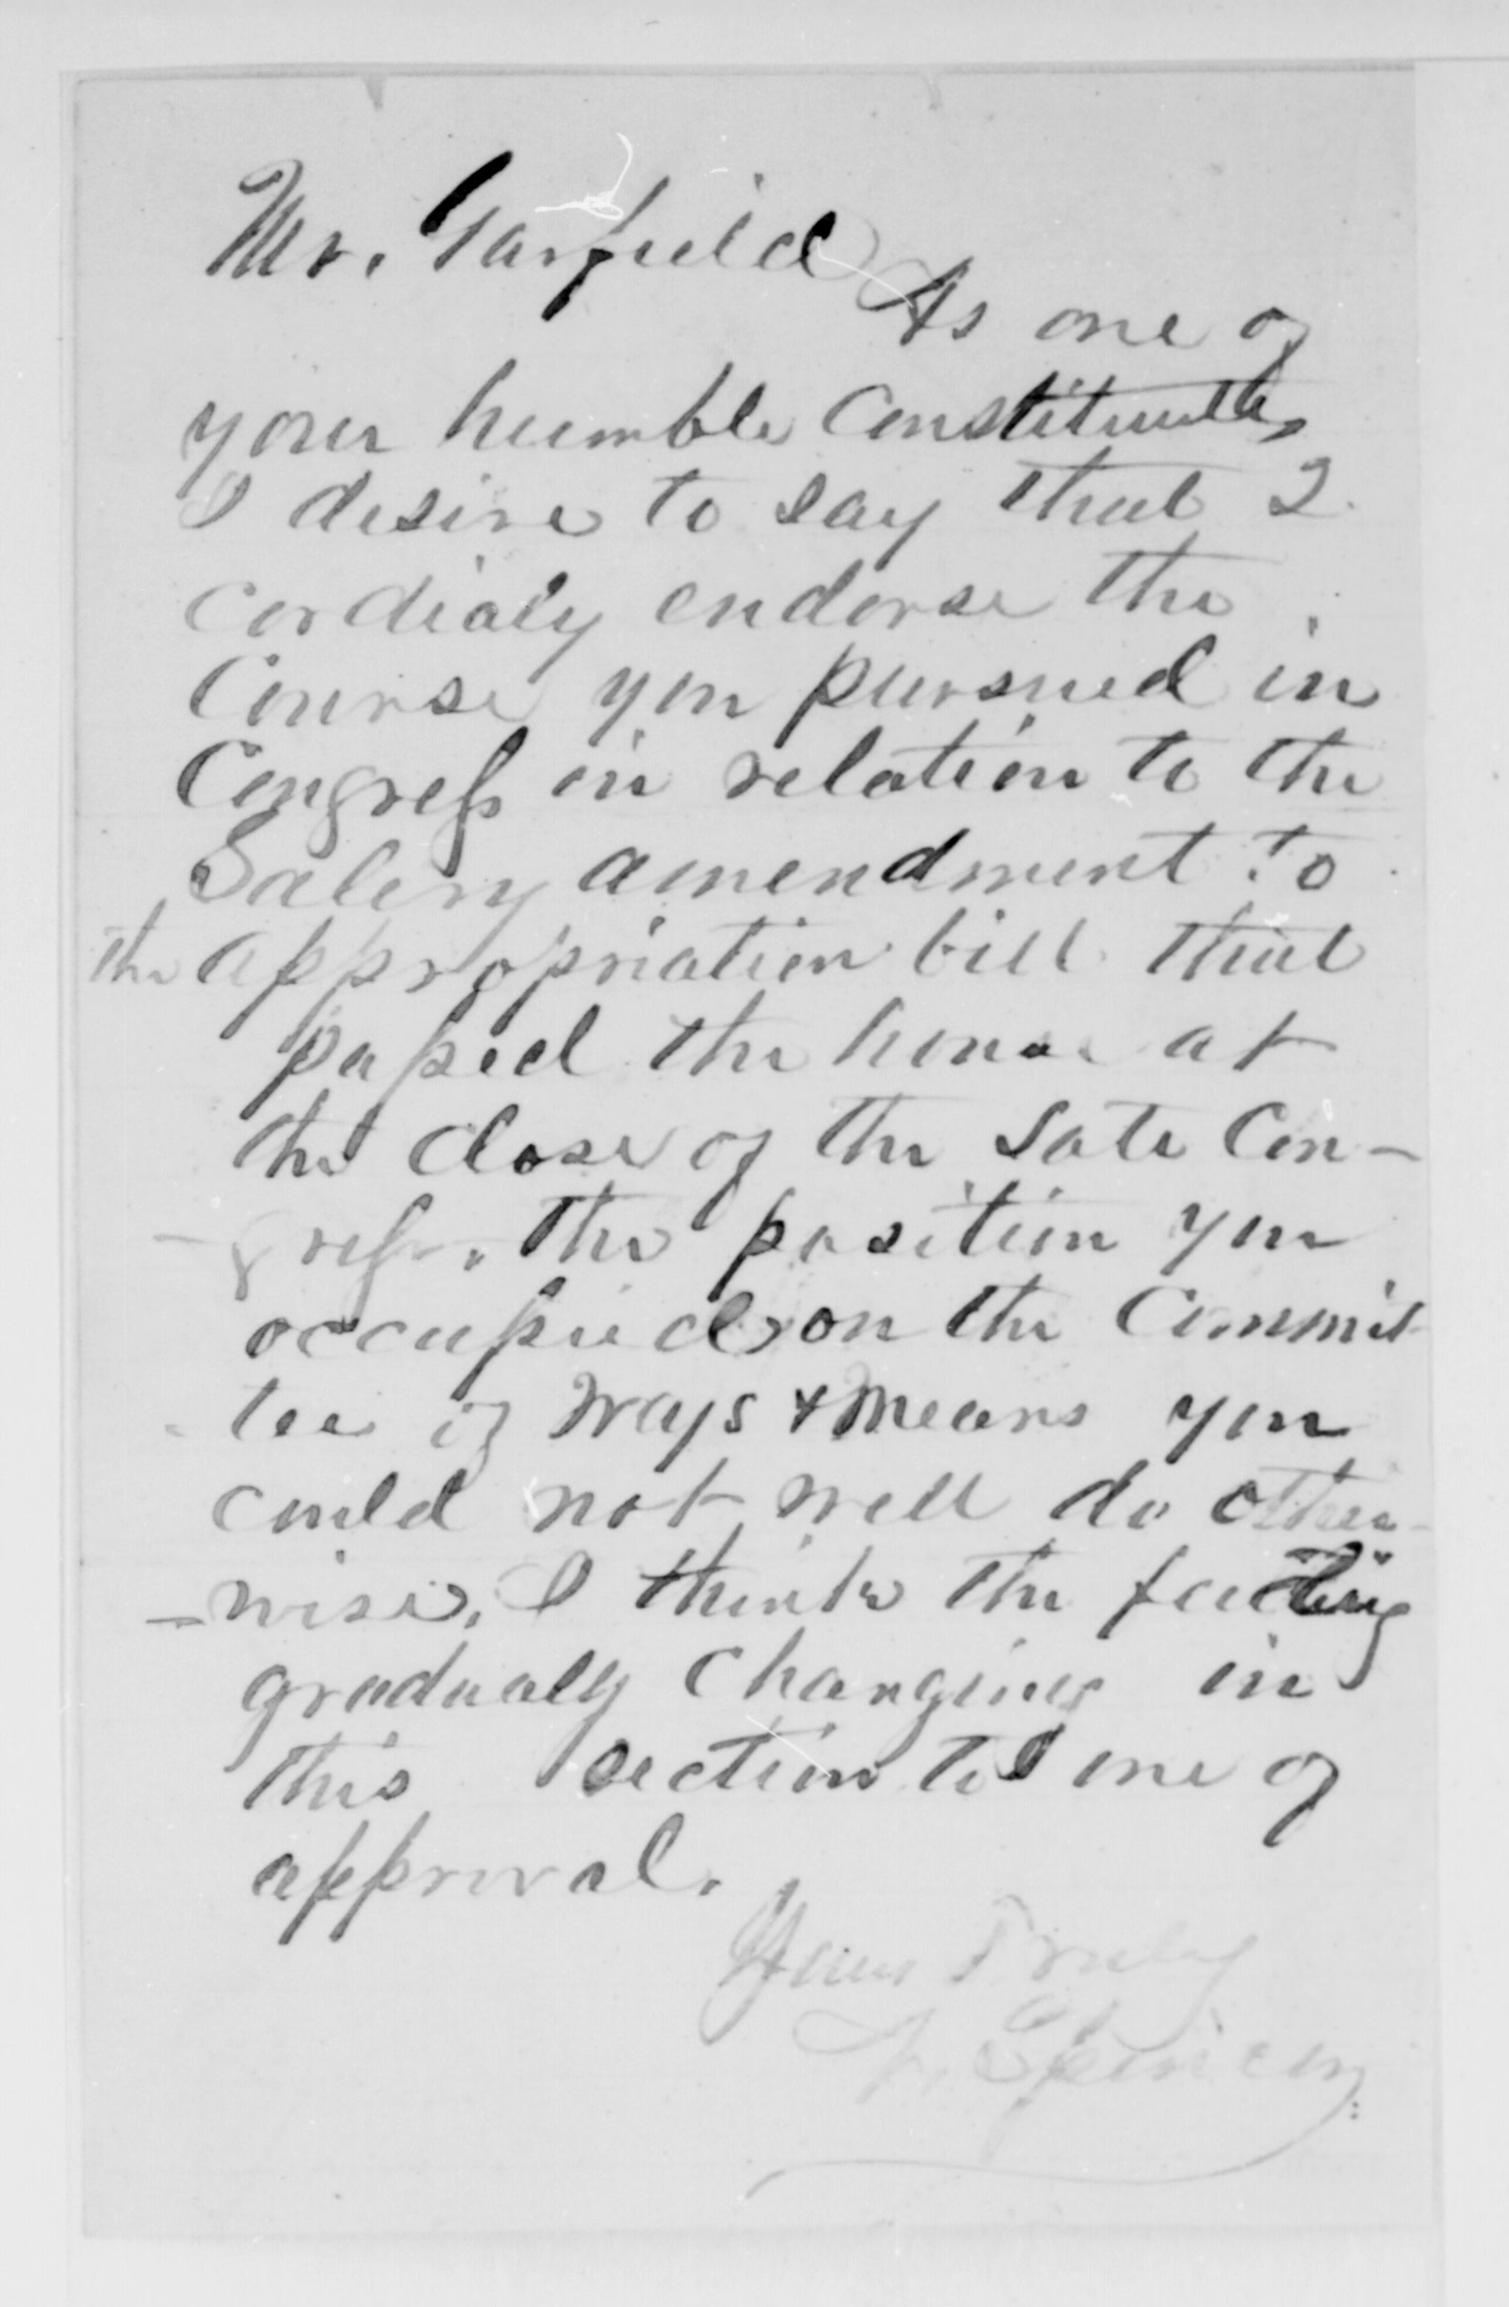 Mr. Garfield
As one of
your humble Constituents
I desire to say that I
cordialy endorse the
Course you pursued in
Congress in relation to the
Salery amendment to
the appropriation bill that
passed the house at
the close of the late Con-
- gress. The position you
occupied on the Commit
tee of Ways & Means you
could not well do other
- wise. I think the feeling
gradualy changing in
this section to one of
approval.
Yours Truly